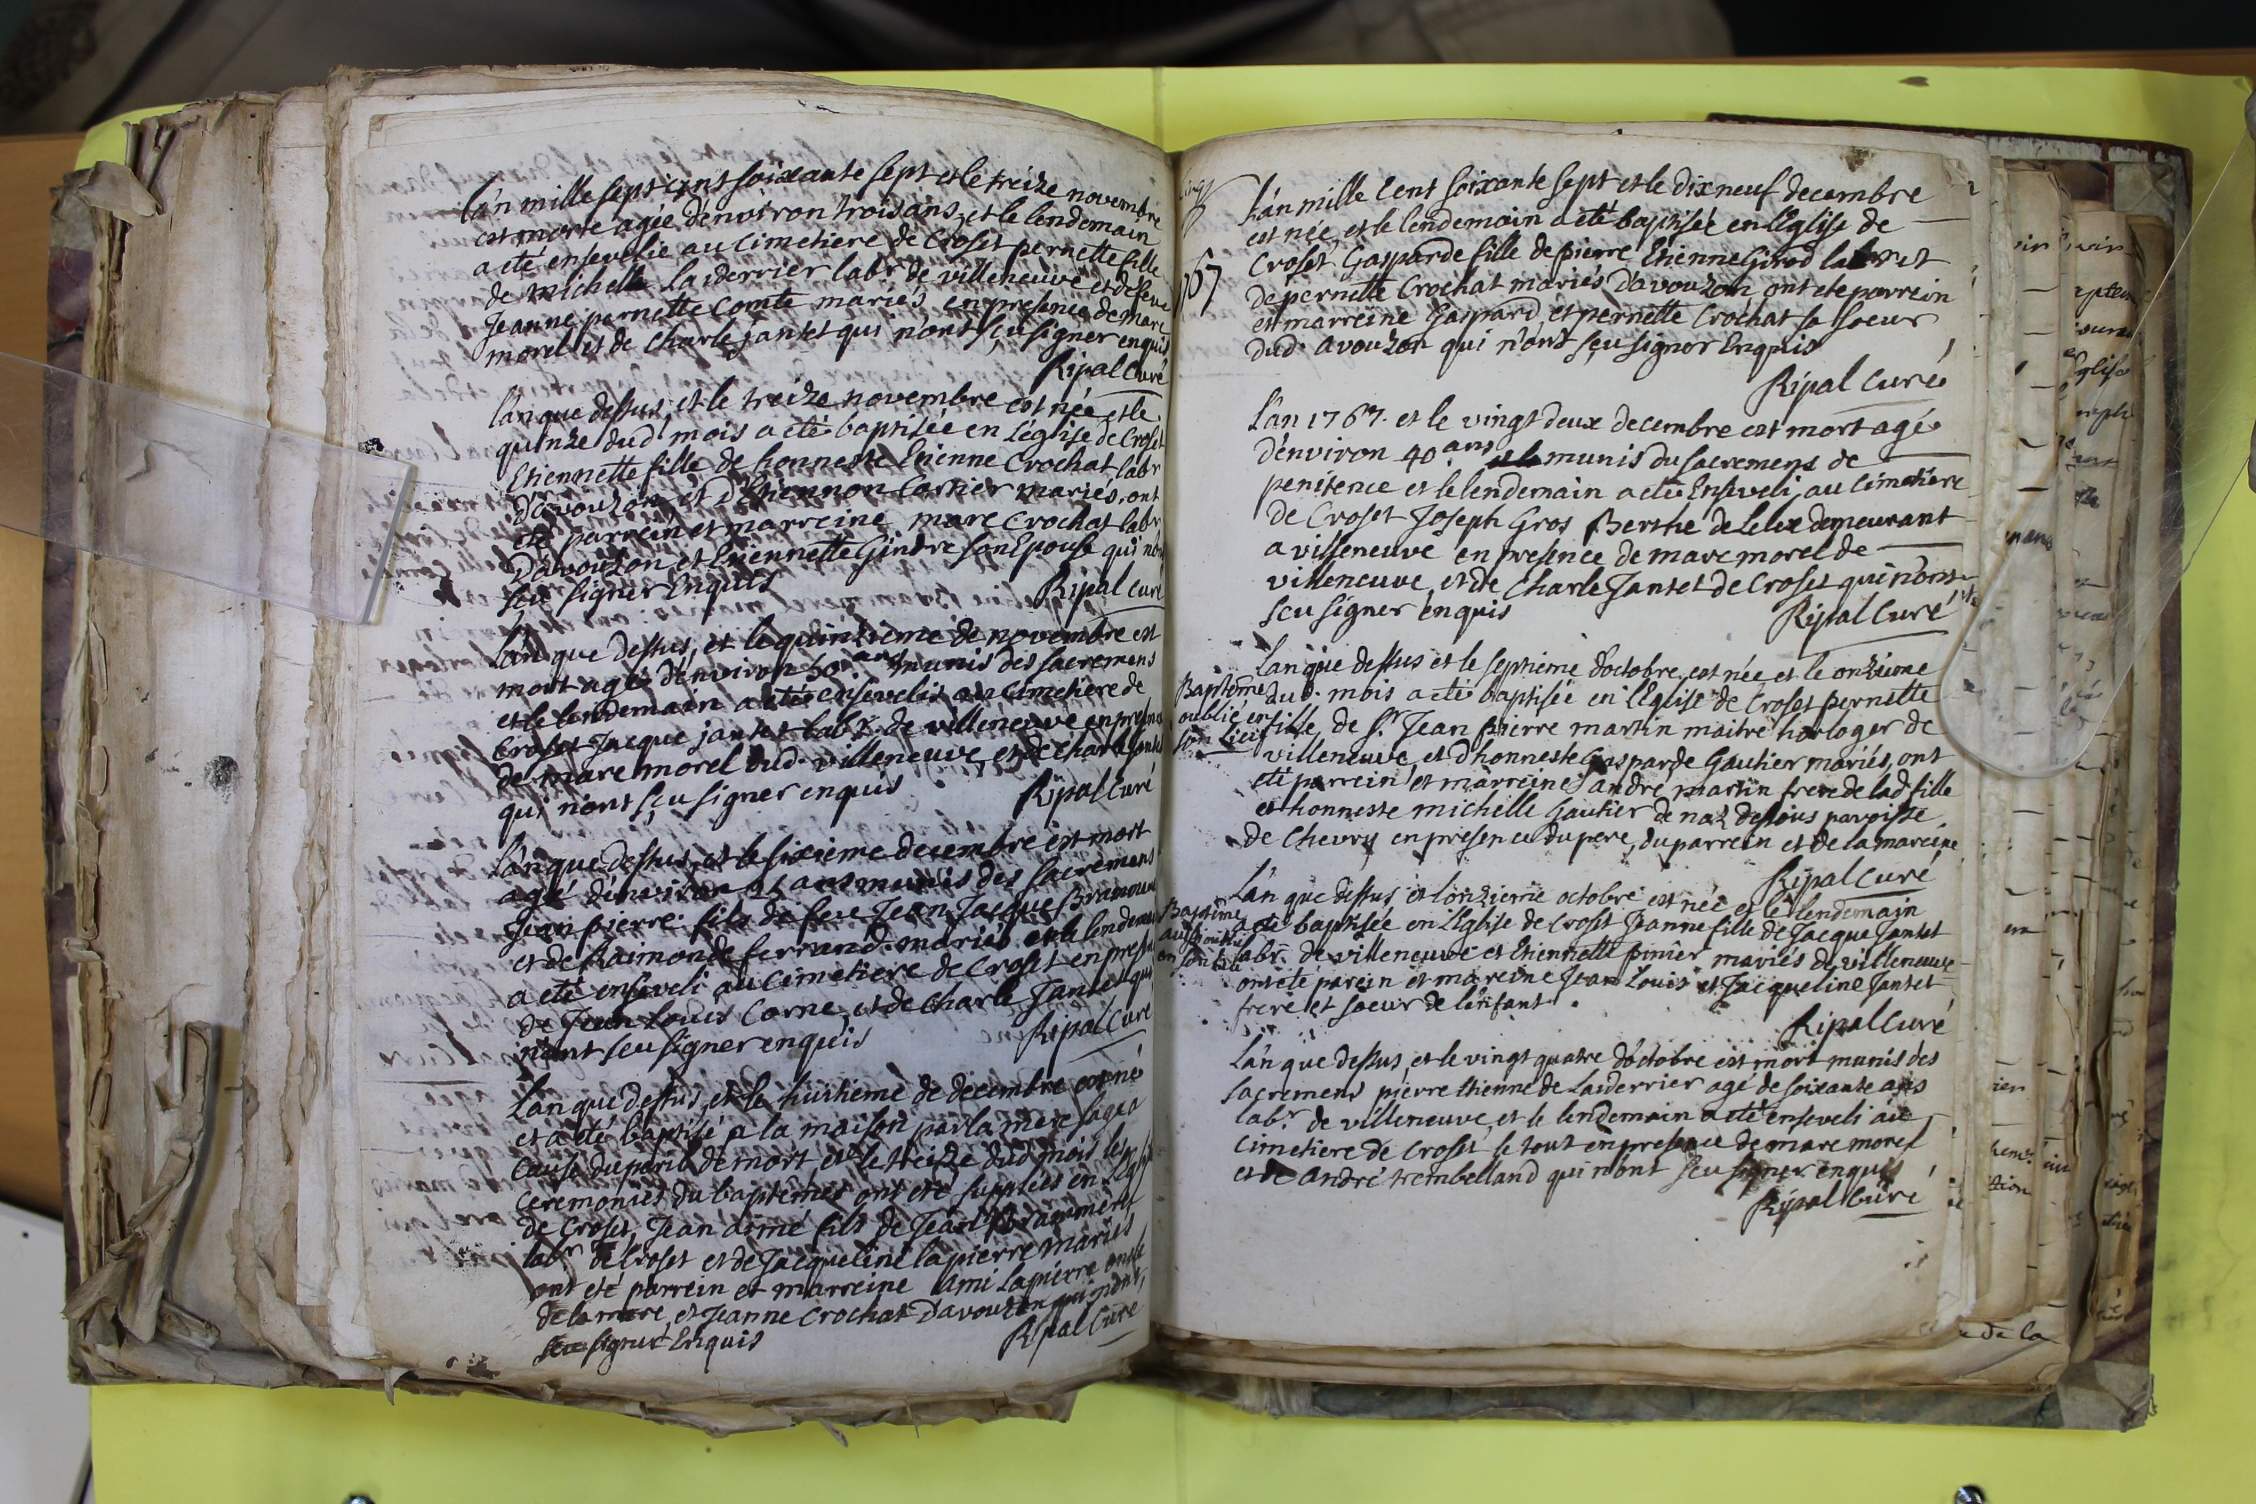 L'an mille sept cent soixante sept et le treize novembre
est morte agée d'environ trois ans, et le lendemain
a eté ensevelie au Cimetiere de Croset pernette fille
de michelle Laiderrier labr de villeneuve et de feue
Jeanne pernette Comte mariés, en presence de marc
morel et de Charle jantet qui n'ont sçu signer enquis
Ripal Curé
L'an que dessus, et le treize novembre est née et le
quinze dud. mois a eté baptisée en L'église de Croset
Etiennette fille de honneste Etienne Crochat labr
d'avouzon, et d'Etiennon Cartier mariés, ont
eté parrein et marreine marc Crochat labr
D'avouzon et Etiennette Gindre son Epouse qui n'ont
sçu signer Enquis
Ripal curé
L'an que dessus, et le quinzieme de novembre est
mort agé d'environ 50 ans munis des sacremens
et le lendemain a eté ensevelis au Cimetiere de
Croset Jacque jantet labr. de villeneuve en presence
de marc morel dud. villeneuve, et de charle Jantet
qui n'ont sçu signer enquis
Ripal Curé
L'an que dessus, et le sixieme decembre est mort
agé d'environ ans munis des sacremens
Jean pierre fils de feu Jean Jacque
et de Raimonde ferrand mariés et le lendemain
a eté enseveli au Cimetiere de Croset en presence
de Jean Louis Corne, et de Charle Jantet qui
n'ont sçu signer enquis
Ripal Curé
L'an que dessus, et le huitieme de decembre est né
et a eté baptisé a la maison par la mere sage a
Cause du peril de mort et le treize dud mois les
ceremonies du baptemes ont eté supplées en L'Eglise
de Croset, Jean aimé fils de Jean
labr de Croset et de Jacqueline lapierre mariés
ont eté parrein et marreine ami Lapierre oncle
de la mere, et Jeanne Crochat D'avouzon qui n'ont
sçu signer Enquis
Ripal Curé
767
L'an mille Cent soixante sept et le dix neuf decembre
est née et le lendemain a eté baptisée en l'Eglise de
Croset Gasparde fille de pierre Etienne Girod labr et
de pernette Crochat mariés D'avouzon ont ete parrein
et marreine Gaspard, et pernette Crochat sa soeur
dud. avouzon qui n'ont sçu signer Enquis
Ripal Curé
L'an 1767. et le vingt deux decembre est mort agé
d'environ 40 ans munis du sacremens de
penitence et le lendemain a eté Enseveli, au Cimetiere
de Croset Joseph Gros Berthe de Lelex demeurant
a villeneuve en presence de marc morel de
villeneuve, et de Charle Jantet de Croset qui n'ont
sçu signer enquis
Ripal Curé
L'an que dessus et le septieme d'octobre, est née et le onzieme
Baptême dud. mois a eté baptisée en l'Eglise de Croset pernette
oublié en fille de Sr Jean pierre martin maitre horloger de
son Lieu villeneuve, et d'honneste Gasparde Gautier mariés, ont
eté parrein et marreine andré martin frere de lad fille
et honneste michelle Gautier de naz dessous paroisse
de Chevry en presence du pere, du parrein et de la mareine
Ripal Curé
L'an que dessus, et l'onzieme octobre est née et le lendemain
Baptême a eté baptisée en l'Eglise de Croset Jeanne fille de Jacque Jantet
aussi oublié labr. de villeneuve et Etiennette pinier mariés de villeneuve
en son Lieu ont eté parein et mareine Jean Louis et Jacqueline Jantet
frere et soeur de l'enfant.
Ripal Curé
L'an que dessus, et le vingt quatre d'octobre est mort munis des
sacremens pierre Etienne de Laiderrier agé de soixante ans
labr. de villeneuve, et le lendemain a eté enseveli au
Cimetiere de Croset le tout en presence de marc morel
et de andré trembelland qui n'ont sçu signer enquis
Ripal Curé
e de la